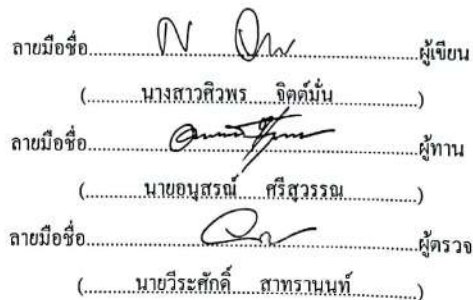 ลายมือชื่อ........................................ผู้เขียน
(........นางสาวศิวพร....จิตต์มั่น................)
ลายมือชื่อ........................................ผู้ทาน
(........นายอนุสรณ์....ศรีสุวรรณ................)
ลายมือชื่อ........................................ผู้ตรวจ
(........นายวีระศักดิ์....สาทรานนท์............)